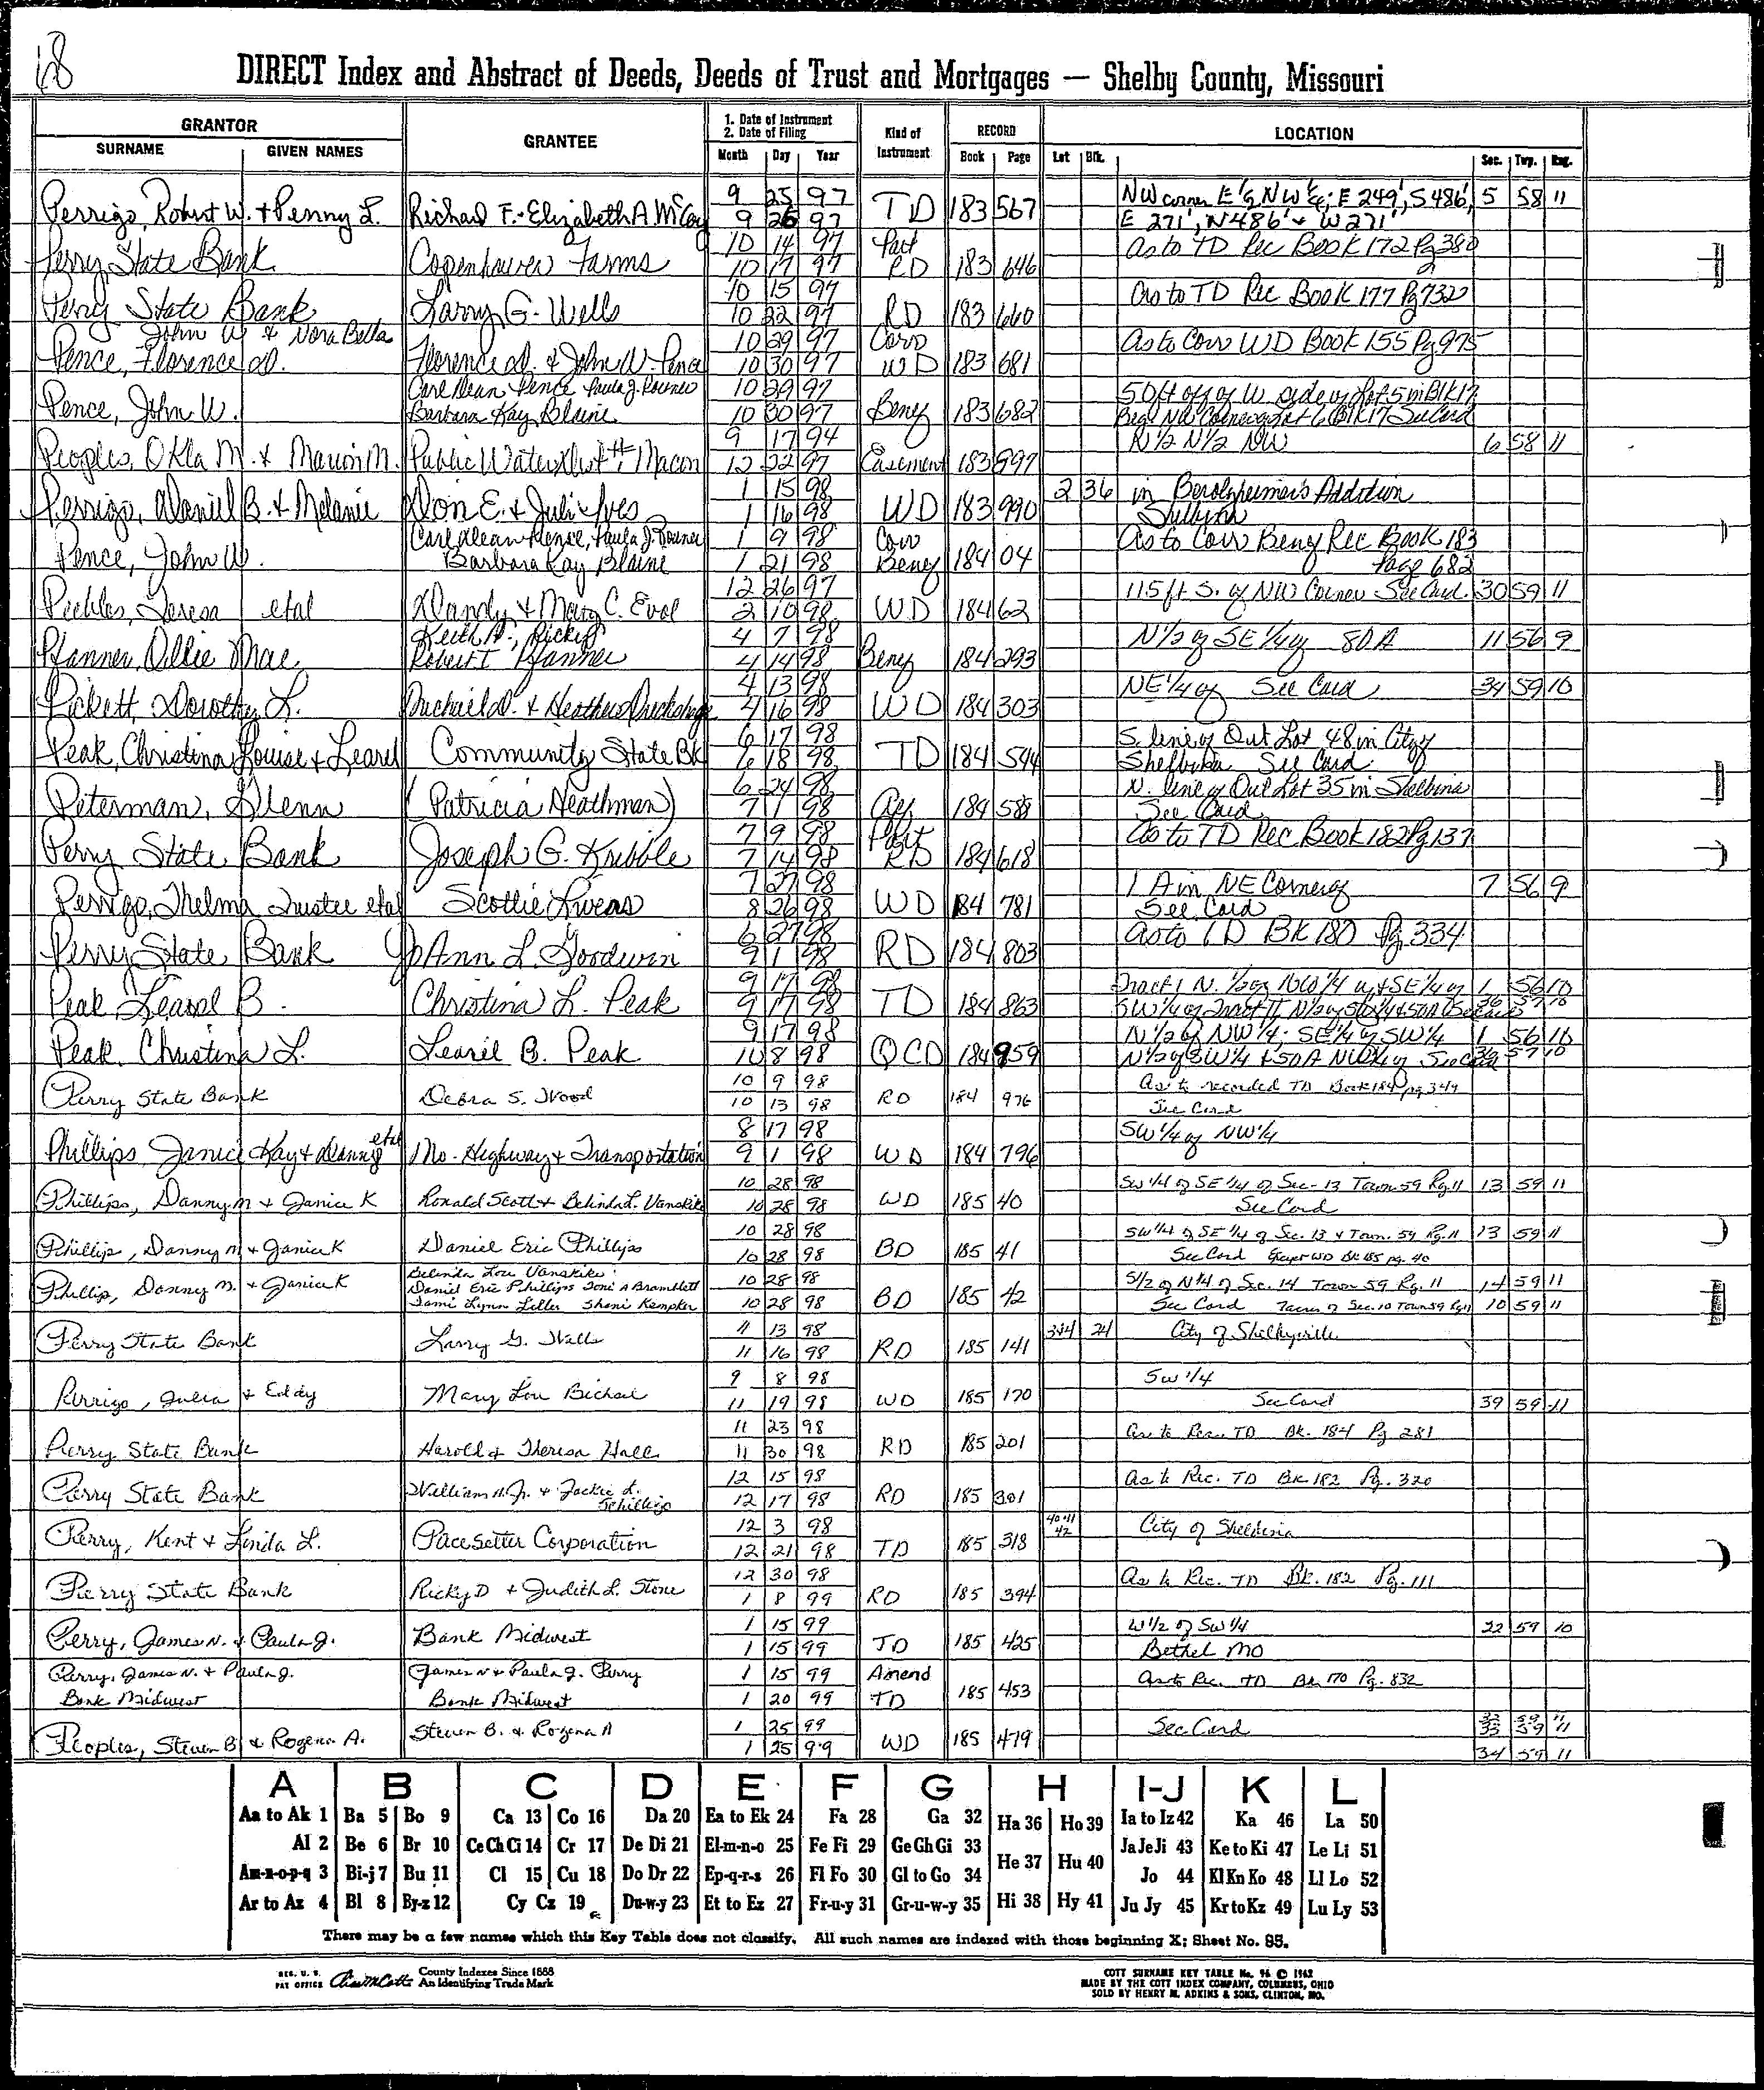 68
DIRECT Index and Abstract of Deeds, Deeds of Trust and Mortgages — Shelby County, Missouri
GRANTOR
SURNAME GIVEN NAMES
GRANTEE
1. Date of Instrument
2. Date of Filing
Month Day Year
Kind of Instrument
RECORD
Book Page
LOCATION
Lot Blk. Sec. Twp. Rng.
Perrigo, Robert W. + Penny L. Richard F. - Elizabeth A. McCoy 9 25 97 TD 183 567 NW corner E 1/2 NW 1/4; E 249', S 486', 5 58 11
9 26 97 E 271', N 486' + W 271'
Perry State Bank Copenhaver Farms 10 14 97 Part RD 183 646 As to TD Rec Book 172 Pg 380
10 17 97
Perry State Bank Larry G. Wells 10 15 97 RD 183 660 As to TD Rec Book 177 Pg 732
10 22 97
John W & Nora Bella
Pence, Florence D. Florence D. & John W. Pence 10 29 97 Corr WD 183 681 As to Corr WD Book 155 Pg 975
10 30 97
Pence, John W. Carl Dean Pence Paula J. Rouner 10 29 97 Beney 183 682 50 ft off of W. side of Lot 5 in Blk 17
Barbara Kay Blaine 10 30 97 Beg. NW Corner of Lot 6 Blk 17 See Card
Peoples, Okla M. & Marion M. Public Water Dist #1, Macon 9 17 94 Easement 183 897 N 1/2 N 1/2 NW 6 58 11
12 22 97
Perrigo, Daniel B. & Melanie Don E. & Juli Ives 1 15 98 WD 183 990 2 36 in Berolzheimer's Addition
1 16 98 Shelbina
Pence, John W. Carl Dean Pence, Paula J. Rouner 1 9 98 Corr Beney 184 04 As to Corr Beney Rec Book 183
Barbara Kay Blaine 1 21 98 Page 682
Peebles, Teresa etal Dandy & Mary C. Eval 12 26 97 WD 184 62 115 ft S. of NW Corner See Card. 30 59 11
2 10 98
Pfanner, Ollie Mae Keith D., Ricky 4 7 98 Beney 184 293 N 1/2 of SE 1/4 of 80 A 11 56 9
Robert T Pfanner 4 14 98
Pickett, Dorothy L. 4 13 98 WD 184 303 NE 1/4 of See Card 34 59 10
4 16 98
Peak, Christina Louise & Learel Community State Bk 6 17 98 TD 184 544 S. line of Out Lot 48 in City of
6 18 98 Shelbina See Card
Peterman, Glenn (Patricia Heathman) 6 24 98 Aff 184 588 N. line of Out Lot 35 in Shelbina
7 1 98 See Card
Perry State Bank Joseph G. Kribble 7 9 98 Part RD 184 618 As to TD Rec Book 182 Pg 137
7 14 98
Perrigo, Thelma Trustee etal Scottie Owens 7 27 98 WD 184 781 1 A in NE Corner of 7 56 9
8 26 98 See Card
Perry State Bank JoAnn L. Goodwin 6 27 98 RD 184 803 As to TD BK 180 Pg 334
9 1 98
Peak Learel B. Christina L. Peak 9 17 98 TD 184 863 Tract 1 N. 1/2 of NW 1/4 of & SE 1/4 of 1 56 10
9 17 98 SW 1/4 of Tract II N 1/2 of SW 1/4 & 50A See Card 36 57 10
Peak, Christina L. Learil B. Peak 9 17 98 QCD 184 959 N 1/2 of NW 1/4; SE 1/4 of SW 1/4 1 56 10
10 8 98 N 1/2 of SW 1/4 & 50 A NW 1/4 of See Card 36 57 10
Perry State Bank Debra S. Wood 10 9 98 RD 184 976 As to recorded TD Book 184 pg 344
10 13 98 See Card
Phillips, Janice Kay & Danny etal Mo. Highway & Transportation 8 17 98 WD 184 796 SW 1/4 of NW 1/4
9 1 98
Phillips, Danny M & Janice K Ronald Scott & Belinda L. Vanskike 10 28 98 WD 185 40 SW 1/4 of SE 1/4 of Sec. 13 Town 59 Rg 11 13 59 11
10 28 98 See Card
Phillip, Danny M & Janice K Daniel Eric Phillips 10 28 98 BD 185 41 SW 1/4 of SE 1/4 of Sec. 13 & Town. 59 Rg. 11 13 59 11
10 28 98 See Card Except WD Bk 185 pg. 40
Phillip, Danny M. & Janice K Belinda Lou Vanskike 10 28 98 BD 185 42 S 1/2 of N 1/4 of Sec. 14 Town 59 Rg. 11 14 59 11
Daniel Eric Phillips Toni A Bramblett
Tami Lynn Leller Shani Kempker 10 28 98 See Card 7 acres of Sec. 10 Town 59 Rg 11 10 59 11
Perry State Bank Larry G. Wells 11 13 98 RD 185 141 3&4 24 City of Shelbyville
11 16 98
Perrigo, Julia & Eddy Mary Lou Bichsel 9 8 98 WD 185 170 SW 1/4
11 19 98 See Card 39 59 11
Perry State Bank Harold & Theresa Hall 11 23 98 RD 185 201 As to Rec. TD Bk. 184 Pg 281
11 30 98
Perry State Bank William H. Jr. & Jackie L. Schillings 12 15 98 RD 185 301 As to Rec. TD Bk 182 Pg. 320
12 17 98
Perry, Kent & Linda L. PaceSetter Corporation 12 3 98 TD 185 318 40 41 42 City of Shelbina
12 21 98
Perry State Bank Ricky D & Judith L. Stone 12 30 98 RD 185 394 As to Rec. TD Bk. 182 Pg. 111
1 8 99
Perry, James N. & Paula J. Bank Midwest 1 15 99 TD 185 425 W 1/2 of SW 1/4 22 59 10
1 15 99 Bethel MO
Perry, James N. & Paula J. James N & Paula J. Perry 1 15 99 Amend TD 185 453 As to Rec. TD Bk 170 Pg. 832
Bank Midwest Bank Midwest 1 20 99
Peoples, Steven B & Rogena A. Steven B. & Rogena A 1 25 99 WD 185 479 See Card 32 59 11
33 59 11
1 25 99 34 59 11
A B C D E F G H I-J K L
Aa to Ak 1 Ba 5 Bo 9 Ca 13 Co 16 Da 20 Ea to Ek 24 Fa 28 Ga 32 Ha 36 Ho 39 Ia to Iz 42 Ka 46 La 50
Al 2 Be 6 Br 10 Ce Ch Ci 14 Cr 17 De Di 21 El-m-n-o 25 Fe Fi 29 Ge Gh Gi 33 He 37 Hu 40 Ja Je Ji 43 Ke to Ki 47 Le Li 51
Am-n-o-p-q 3 Bi-j 7 Bu 11 Cl 15 Cu 18 Do Dr 22 Ep-q-r-s 26 Fl Fo 30 Gl to Go 34 Jo 44 Kl Kn Ko 48 Ll Lo 52
Ar to Az 4 Bl 8 By-z 12 Cy Cz 19 Du-w-y 23 Et to Ez 27 Fr-u-y 31 Gr-u-w-y 35 Hi 38 Hy 41 Ju Jy 45 Kr to Kz 49 Lu Ly 53
There may be a few names which this Key Table does not classify. All such names are indexed with those beginning X; Sheet No. 85.
REG. U. S. PAT OFFICE County Indexes Since 1888
An Identifying Trade Mark
COTT SURNAME KEY TABLE No. 96 © 1962
MADE BY THE COTT INDEX COMPANY, COLUMBUS, OHIO
SOLD BY HENRY M. ADKINS & SONS, CLINTON, MO.